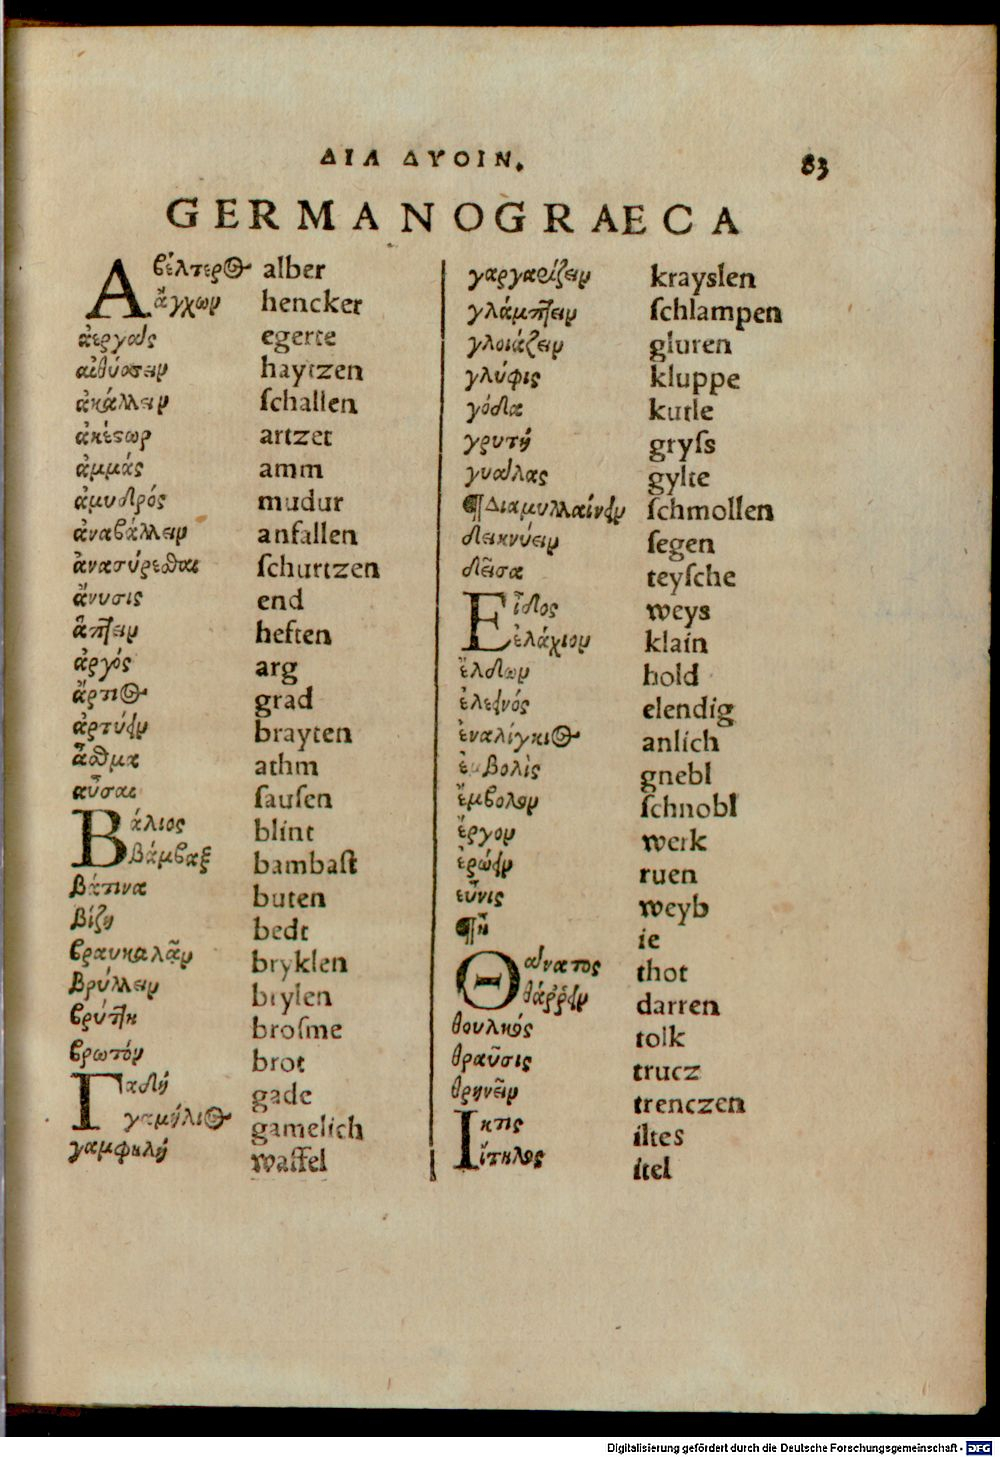 ΔΙΑ ΔΥΟΙΝ.
83
GERMANOGRAECA
Ἀβέλτερος alber
ἄγχων hencker
ἀεργὸς egerte
αἰθύσσειν haytzen
ἀκάλλειν ſchallen
ἀκέστωρ artzet
ἀμμάς amm
ἀμυδρός mudur
ἀναβάλλειν anfallen
ἀνασύρεσθαι ſchurtzen
ἄνυσις end
ἅπτειν heften
ἀργός arg
ἄρτιος grad
ἀρτύειν brayten
ἆσθμα athm
αὖσαι ſauſen
Βάλιος blint
βάμβαξ bambaſt
βάτινα buten
βίζη bedt
βραυκαλᾶν bryklen
βρύλλειν brylen
βρύττη broſme
βρωτόν brot
Γαδή gade
γαμήλιος gamelich
γαμφηλή waffel
γαργαρίζειν krayslen
γλάμπτειν ſchlampen
γλοιάζειν gluren
γλύφις kluppe
γόδα kutle
γρυτή gryſs
γυάλας gylte
¶Διαμυλλαίνειν ſchmollen
δεικνύειν ſegen
δεῖσα teyſche
Εἶδος weys
ἐλάχιον klain
ἔλδωρ hold
ἐλεεινός elendig
ἐναλίγκιος anlich
ἐμβολὶς gnebl
ἔμβολον ſchnobl
ἔργον werk
ἐρώειν ruen
εὖνις weyb
¶ἦ ie
Θάνατος thot
θάῤῥειν darren
θουλκός tolk
θραῦσις trucz
θρηνεῖν trenczen
Ἴκτις iltes
ἴτηλος itel
Digitalisierung gefördert durch die Deutsche Forschungsgemeinschaft - DFG